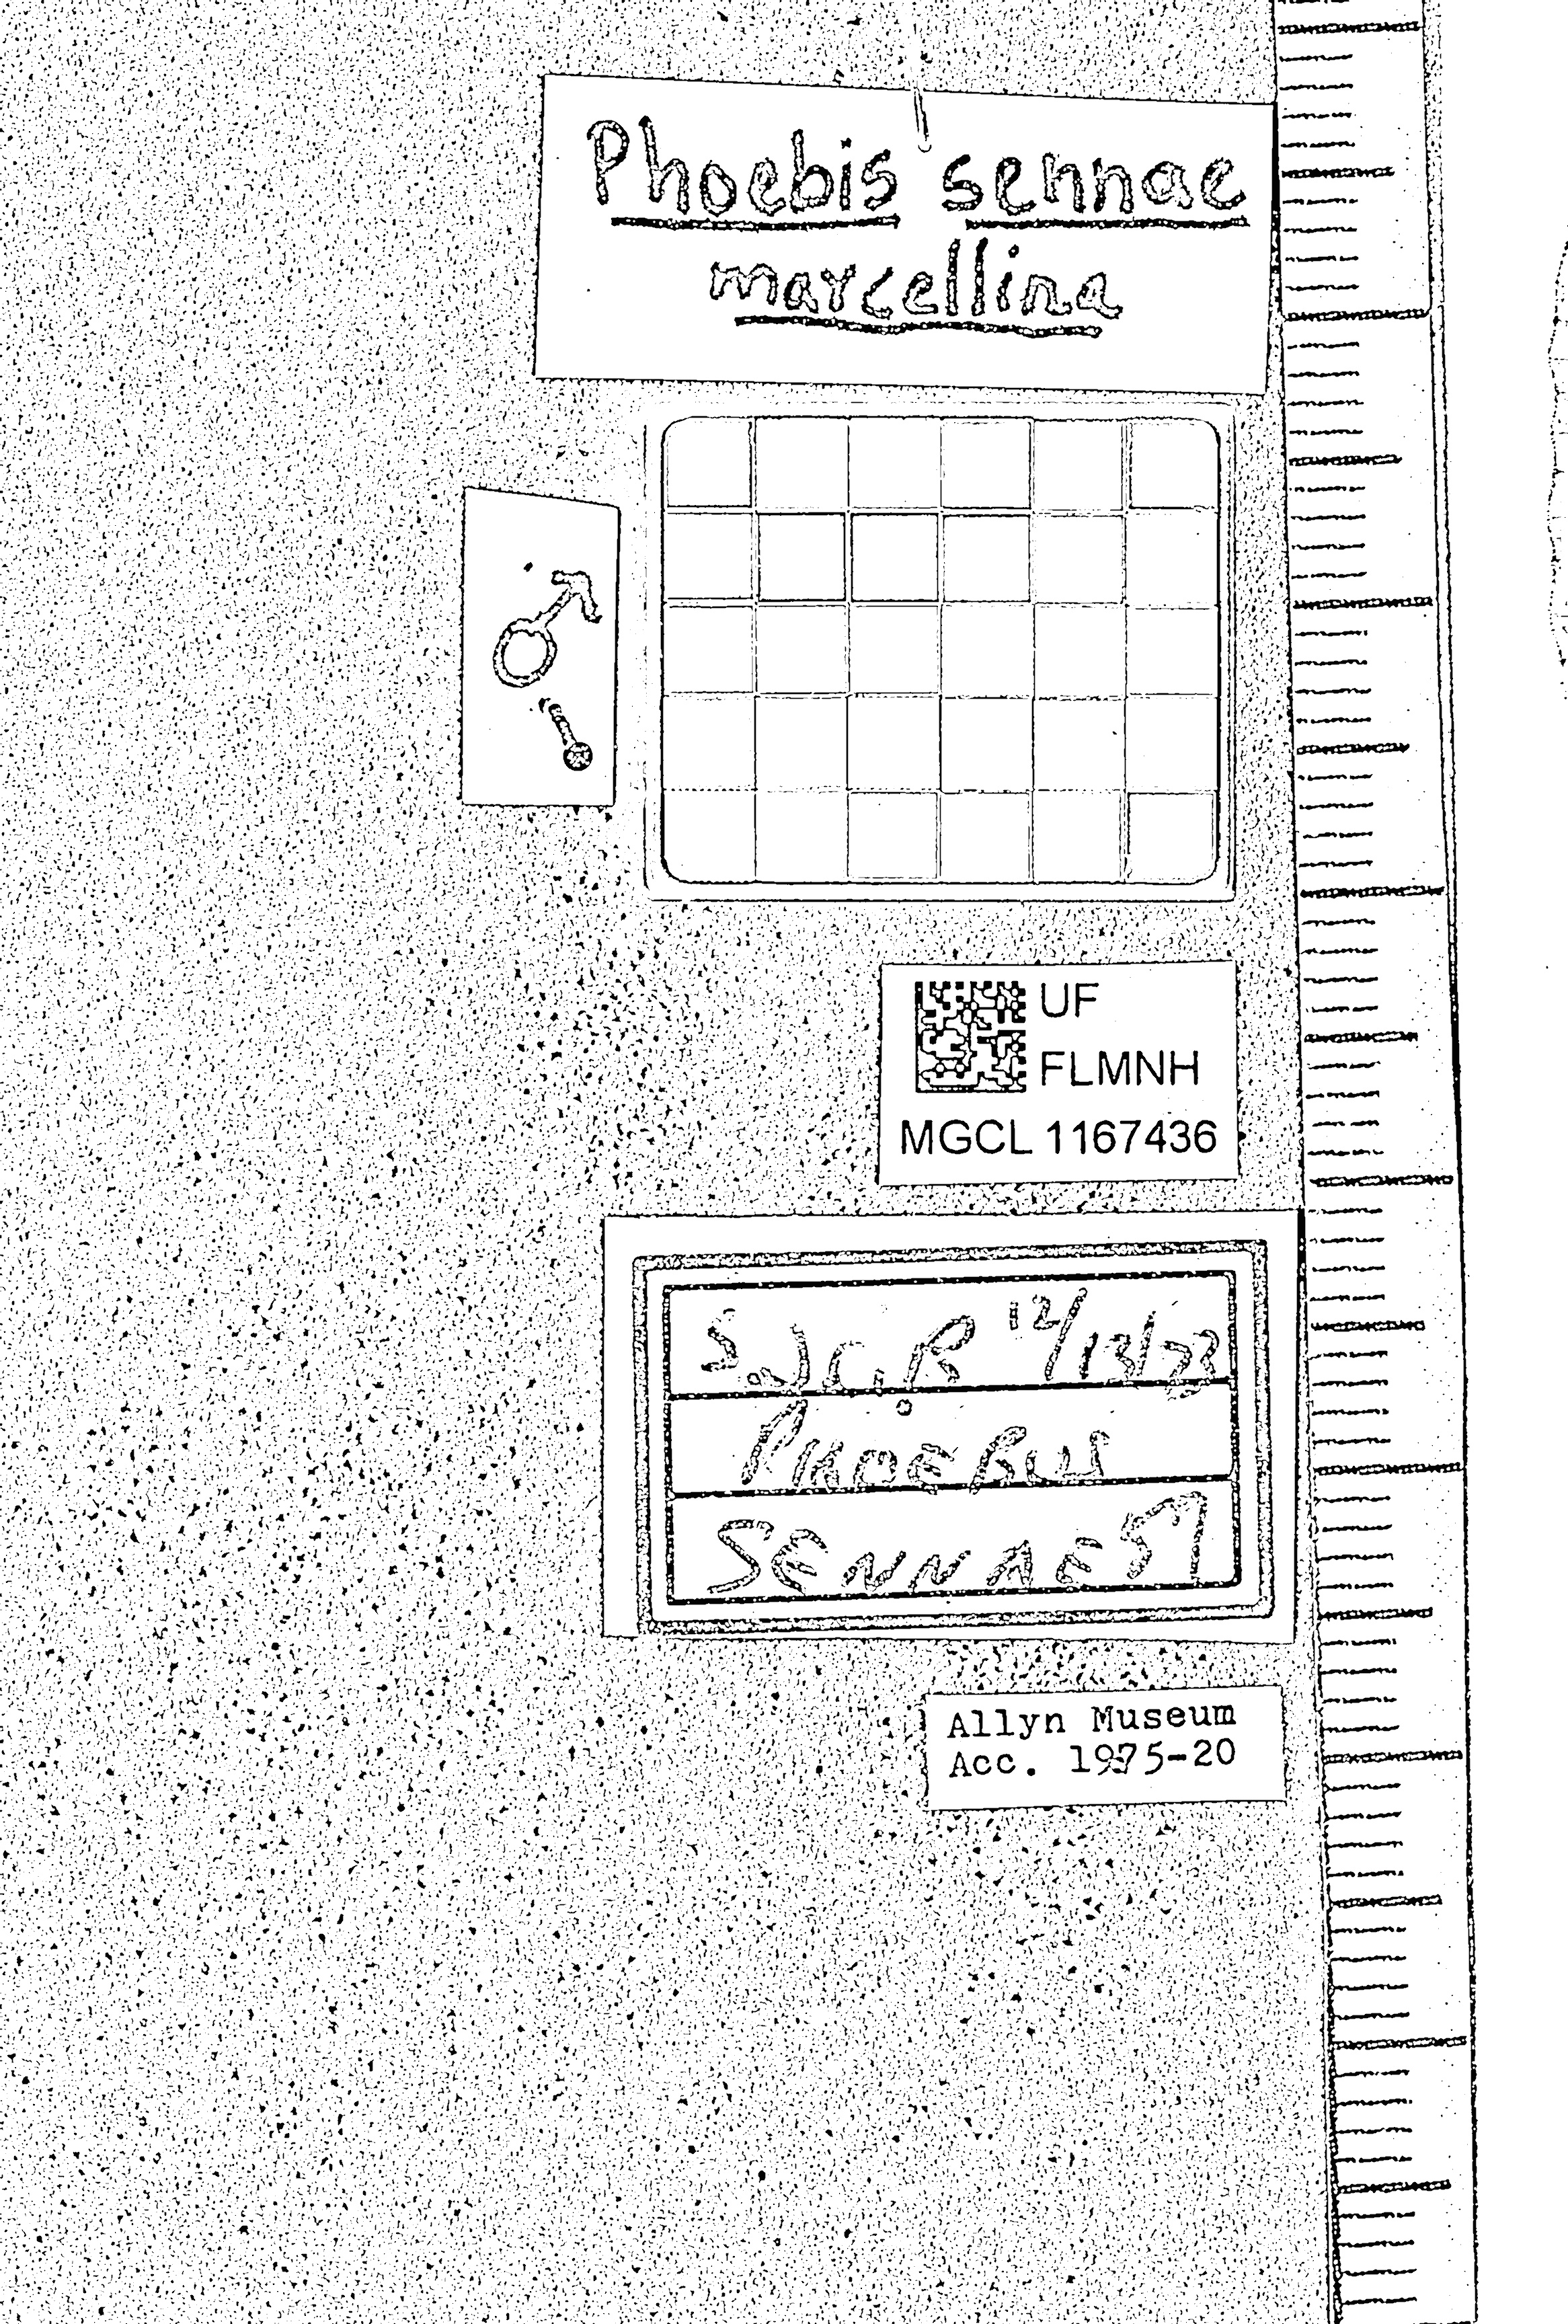 Phoebis sennae
marcellina
♂
UF
FLMNH
MGCL 1167436
S.J.C.R 12/13/73
PHOEBUS
SENNAE
Allyn Museum
Acc. 1975-20